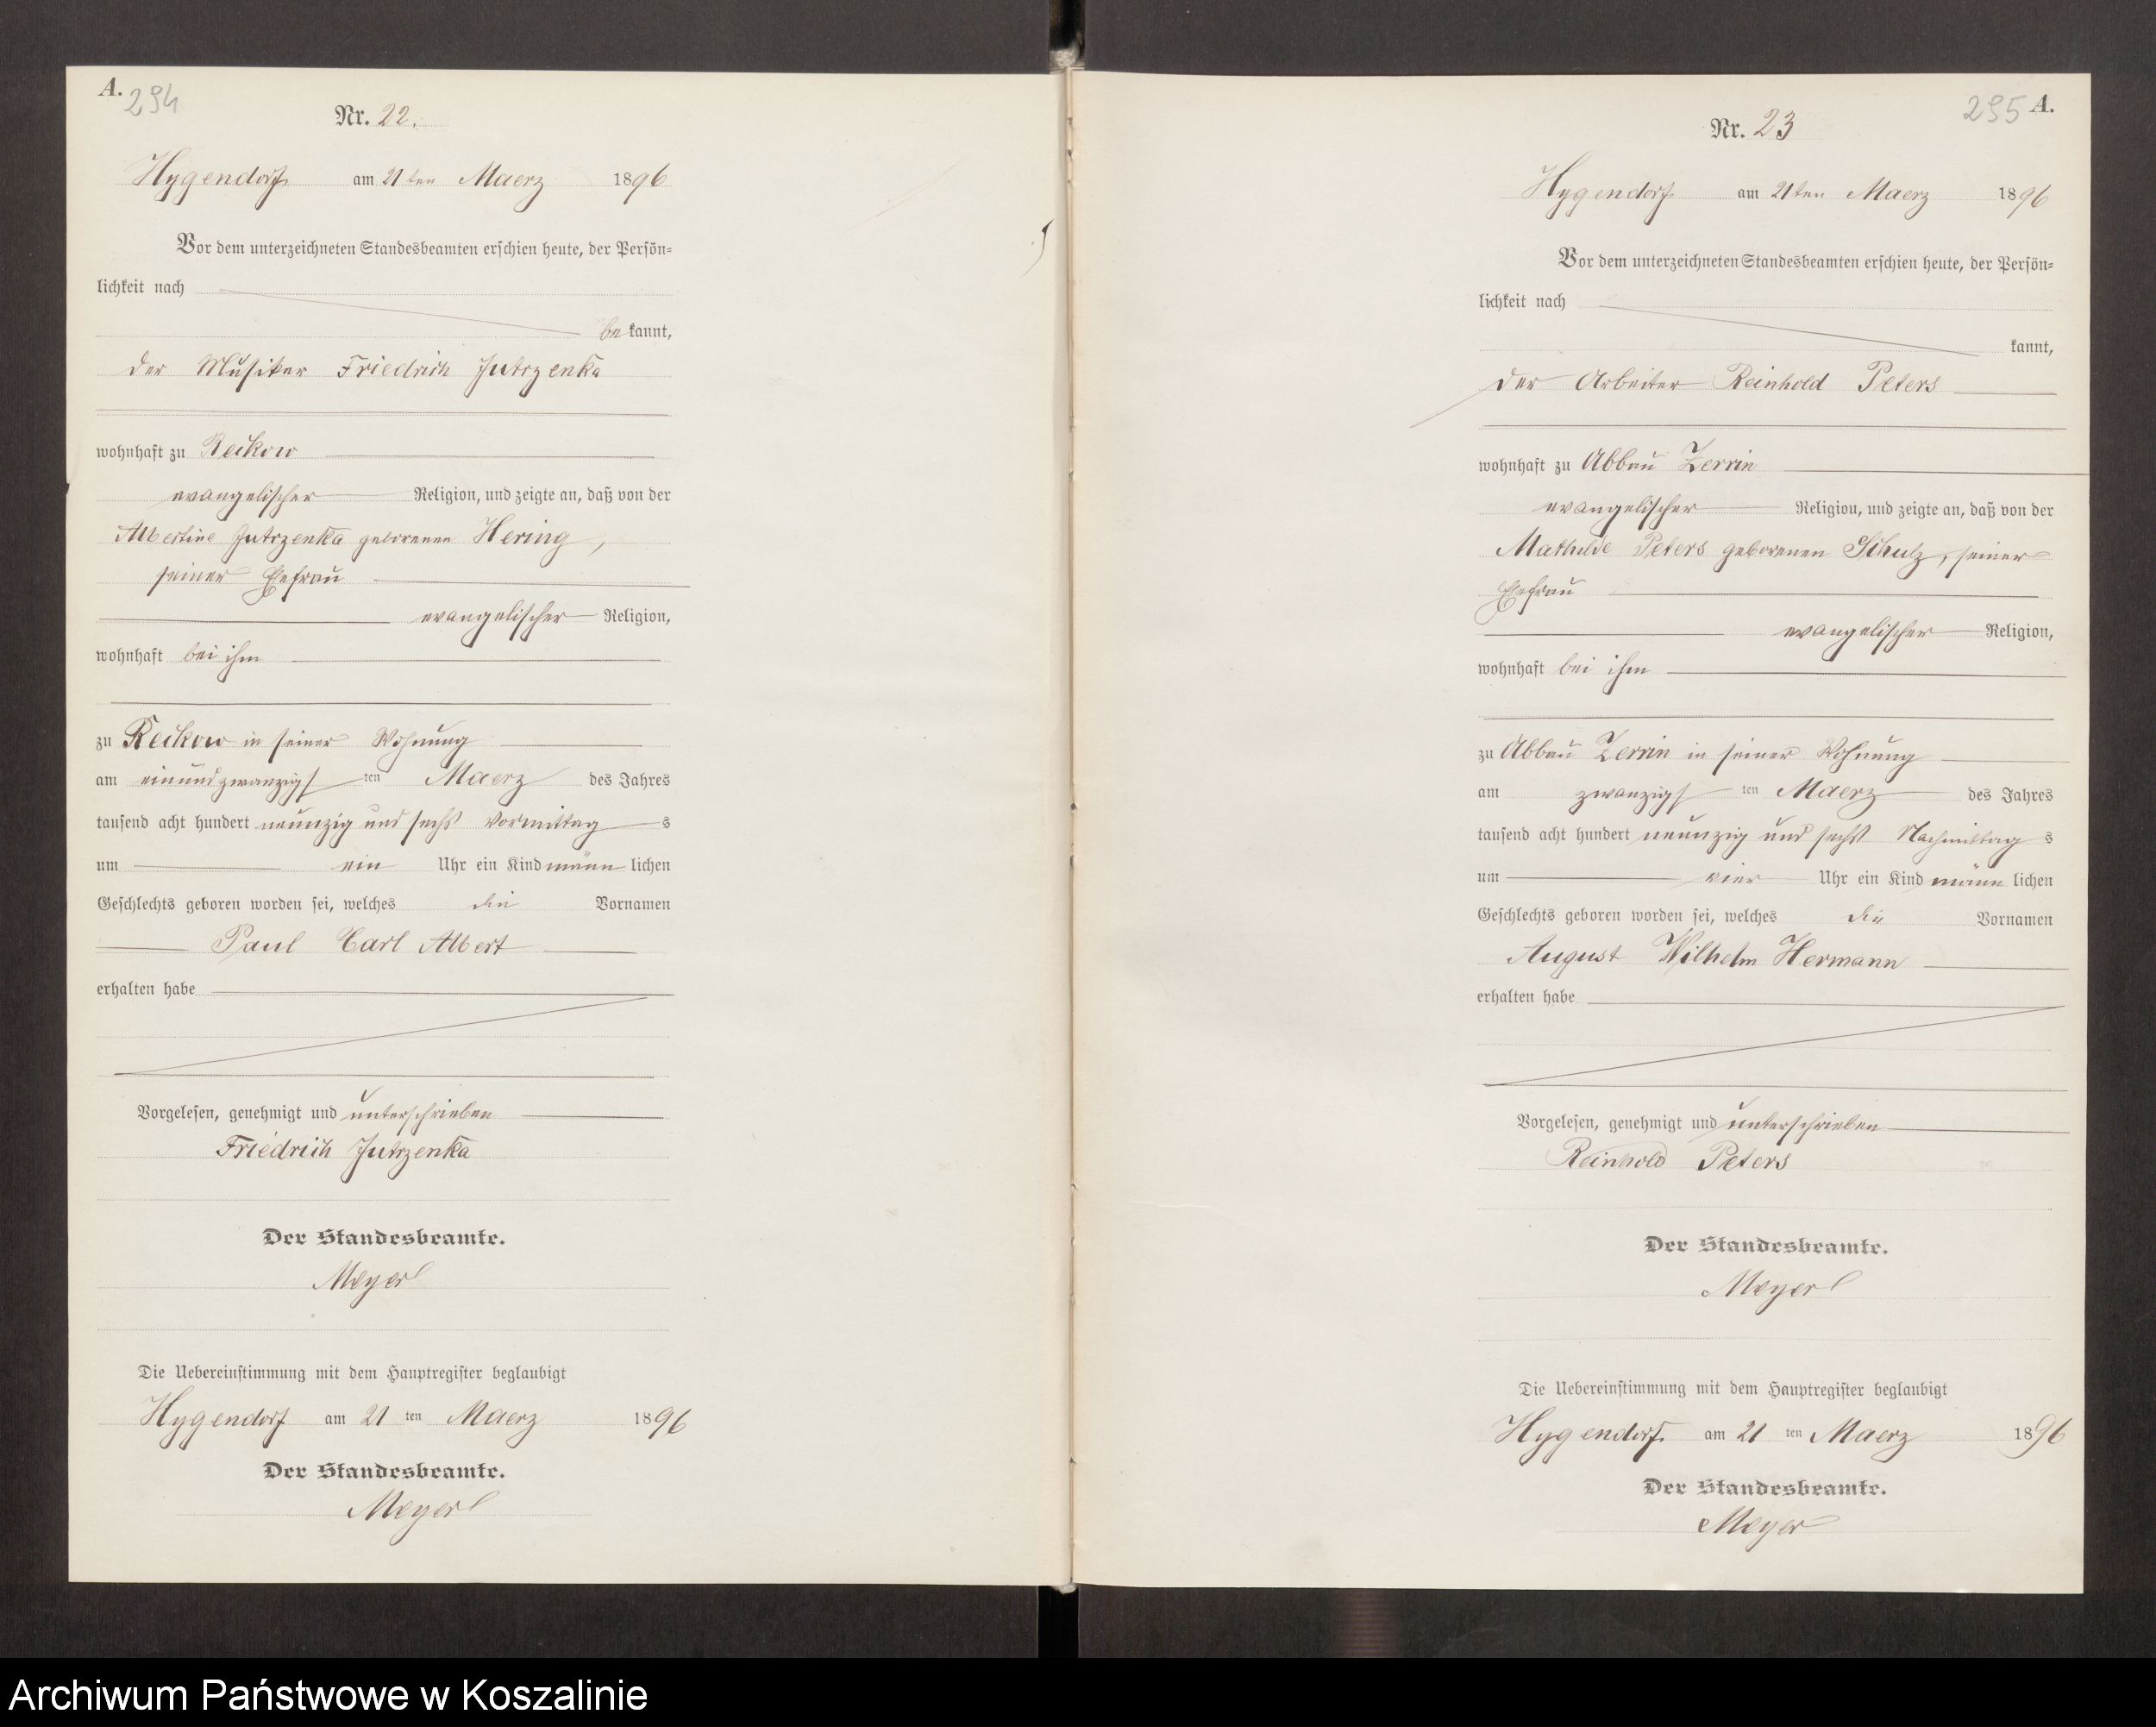 A.
294
Nr. 22.
Hygendorf am 21ten Maerz 1896
Vor dem unterzeichneten Standesbeamten erschien heute, der Persön-
lichkeit nach
bekannt,
der Musiker Friedrich Jutrzenka
wohnhaft zu Reikow
evangelischer Religion, und zeigte an, daß von der
Albertine Jutrzenka geborenen Hering,
seiner Ehefrau
evangelischer Religion,
wohnhaft bei ihm
zu Reikow in seiner Wohnung
am einundzwanzigsten Maerz des Jahres
tausend acht hundert neunzig und sechs Vormittags
um ein Uhr ein Kind männlichen
Geschlechts geboren worden sei, welches die Vornamen
Paul Carl Albert
erhalten habe
Vorgelesen, genehmigt und unterschrieben
Friedrich Jutrzenka
Der Standesbeamte.
Meyer
Die Uebereinstimmung mit dem Hauptregister beglaubigt
Hygendorf am 21 ten Maerz 1896
Der Standesbeamte.
Meyer
295 A.
Nr. 23
Hygendorf am 21ten Maerz 1896
Vor dem unterzeichneten Standesbeamten erschien heute, der Persön-
lichkeit nach
kannt,
der Arbeiter Reinhold Peters
wohnhaft zu Abbau Zerrin
evangelischer Religion, und zeigte an, daß von der
Mathilde Peters geborenen Schulz, seiner
Ehefrau
evangelischer Religion,
wohnhaft bei ihm
zu Abbau Zerrin in seiner Wohnung
am zwanzigsten Maerz des Jahres
tausend acht hundert neunzig und sechs Nachmittags
um vier Uhr ein Kind männlichen
Geschlechts geboren worden sei, welches die Vornamen
August Wilhelm Hermann
erhalten habe
Vorgelesen, genehmigt und unterschrieben
Reinhold Peters
Der Standesbeamte.
Meyer
Die Uebereinstimmung mit dem Hauptregister beglaubigt
Hygendorf am 21 ten Maerz 1896
Der Standesbeamte.
Meyer
Archiwum Państwowe w Koszalinie